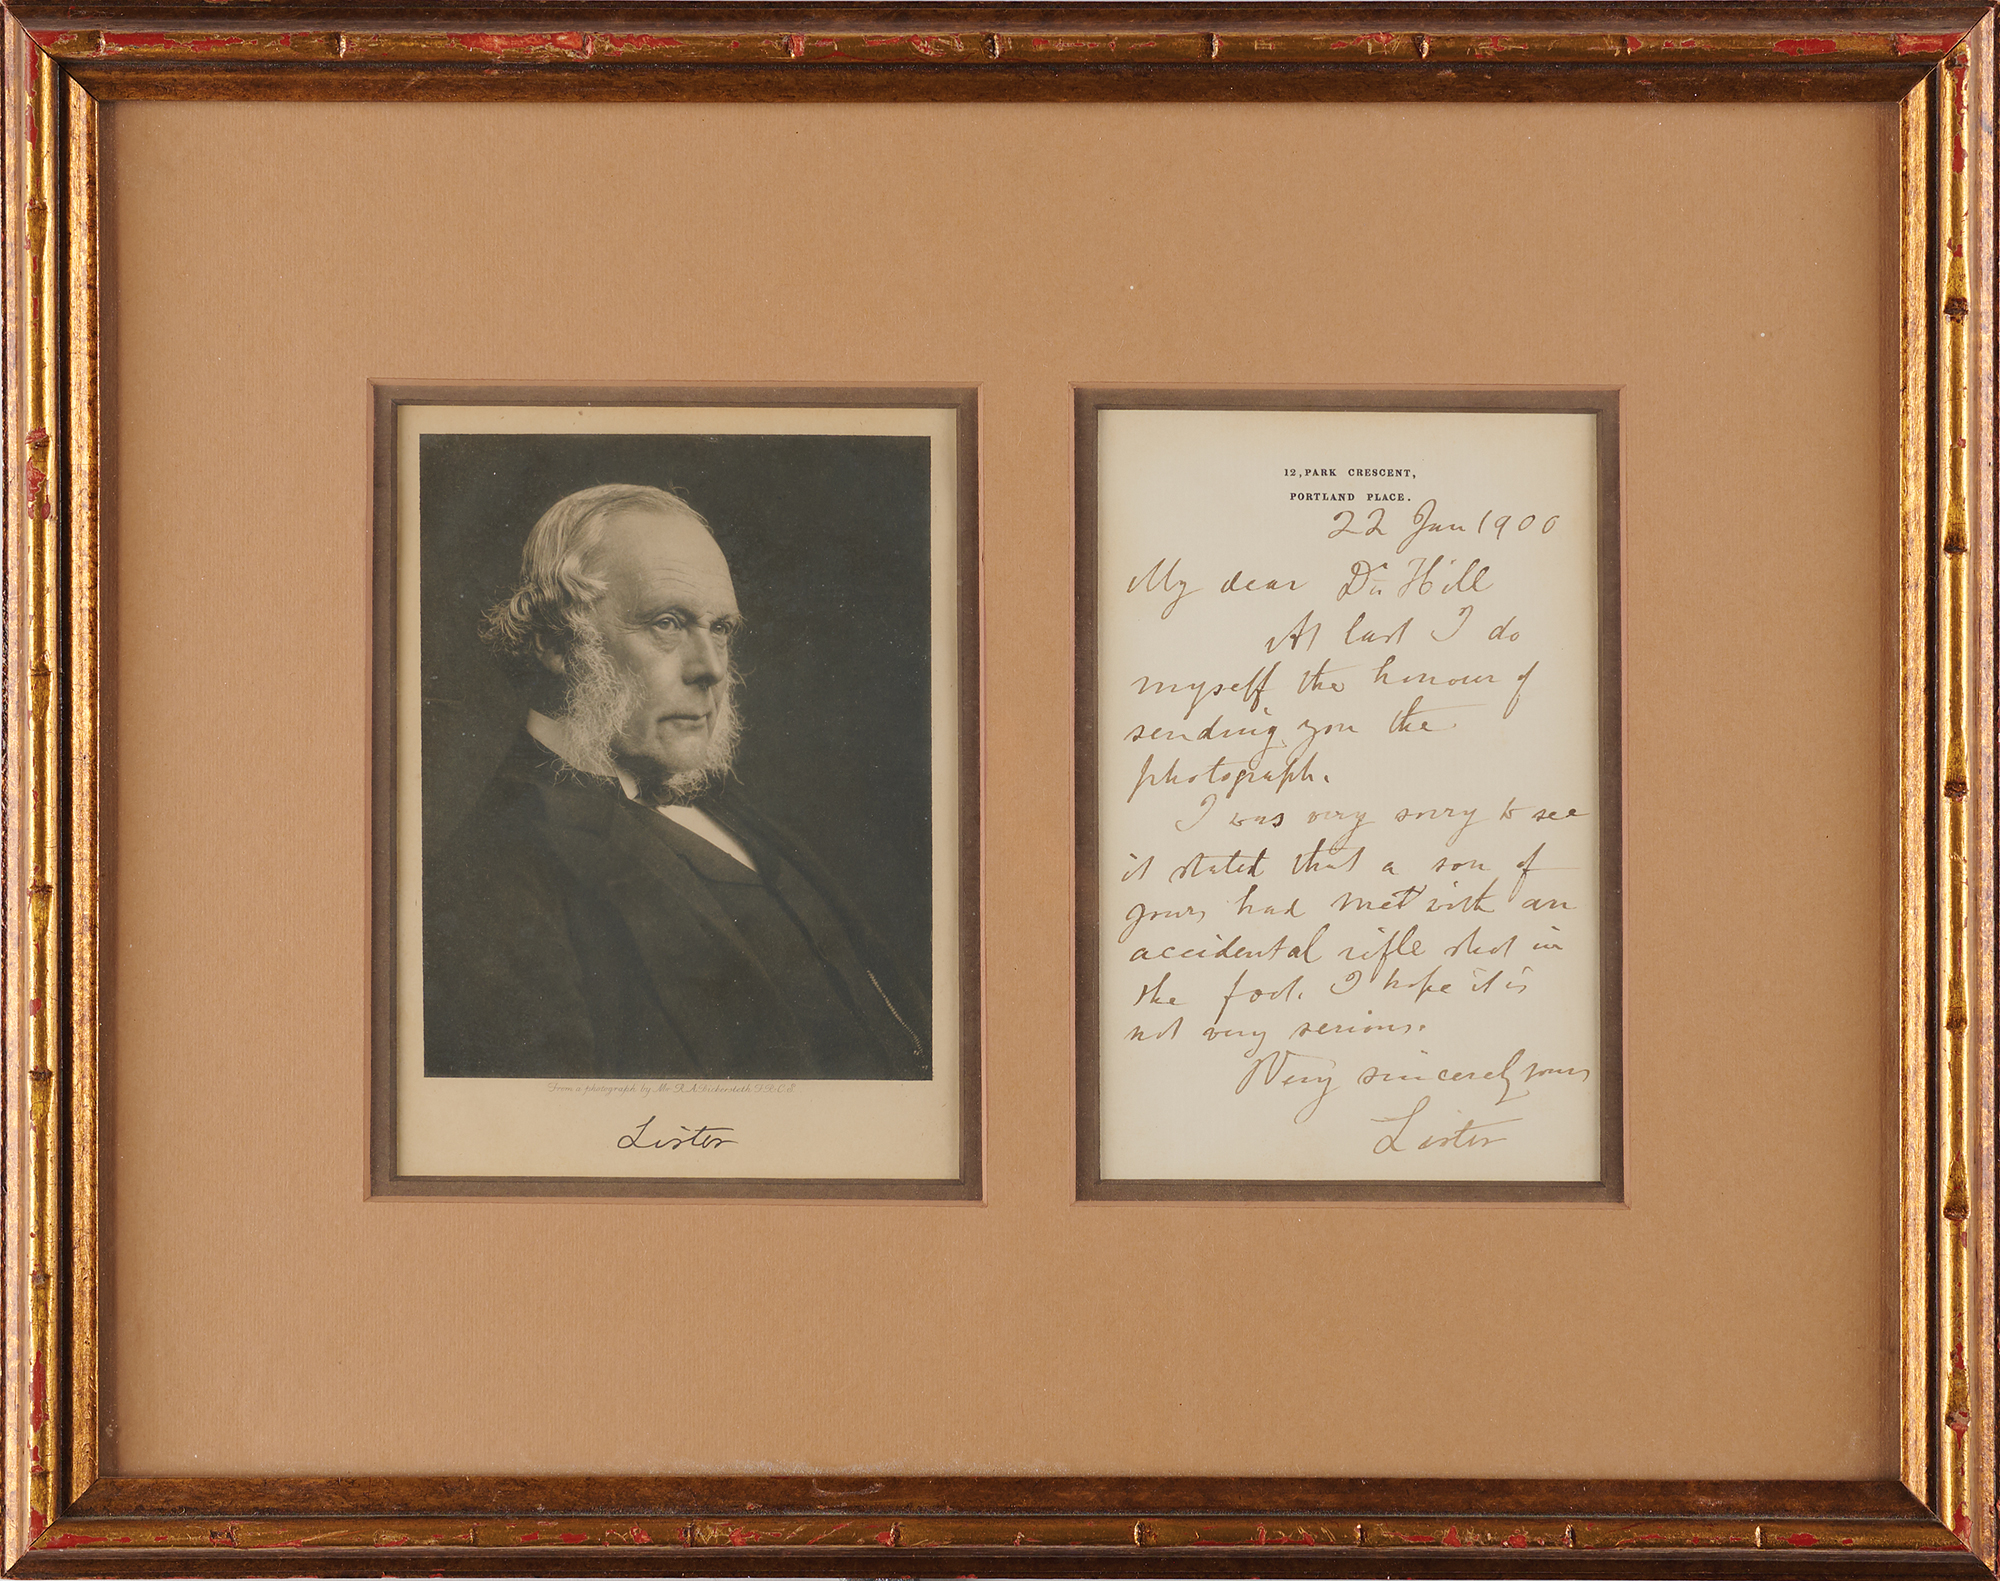 From a photograph by Mr R. A. Bickersteth F.R.C.S.
Lister
12, PARK CRESCENT,
PORTLAND PLACE.
22 Jan 1900
My dear Dr. Hill
At last I do
myself the honour of
sending you the
photograph.
I was very sorry to see
it stated that a son of
yours had met with an
accidental rifle shot in
the foot. I hope it is
not very serious.
Very sincerely yours
Lister